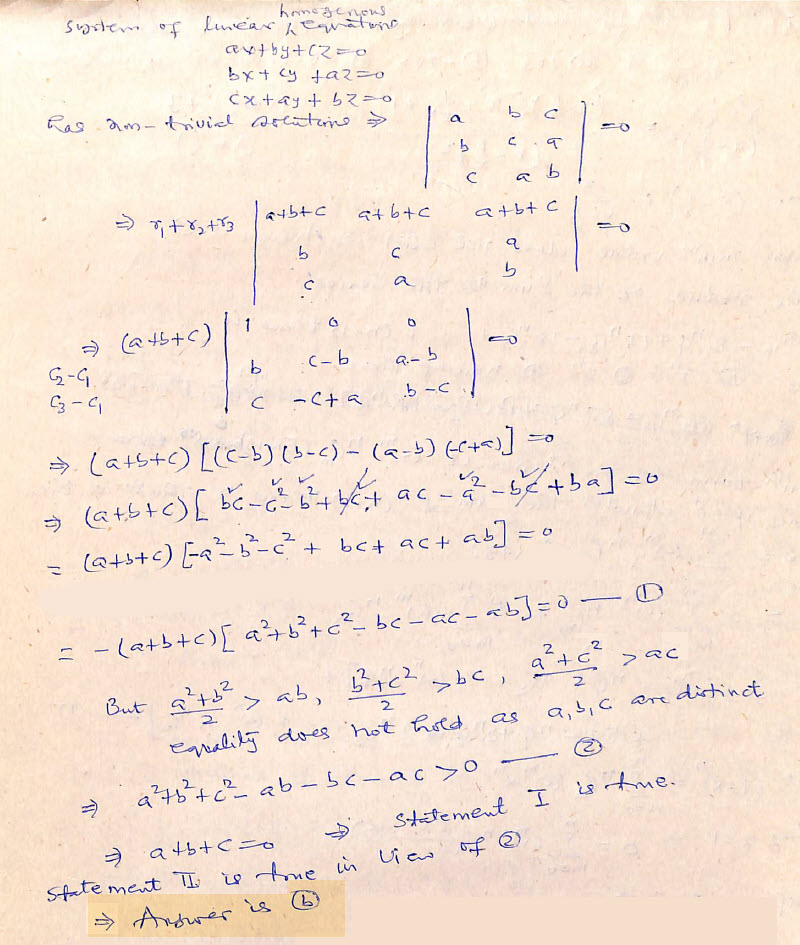 homogenous
System of linear ∧ equations
ax+by+cz=0
bx+cy+az=0
cx+ay+bz=0
has non-trivial solutions ⇒ | a b c |
| b c a | =0
| c a b |
⇒ r₁+r₂+r₃ | a+b+c a+b+c a+b+c |
| b c a | =0
| c a b |
⇒ (a+b+c) | 1 0 0 |
C₂-C₁ | b c-b a-b | =0
C₃-C₁ | c -c+a b-c |
⇒ (a+b+c) [(c-b)(b-c) - (a-b)(-c+a)] =0
⇒ (a+b+c) [bc-c²-b²+bc+ac-a²-bc+ba]=0
= (a+b+c) [-a²-b²-c²+ bc+ac+ab] =0
= -(a+b+c)[a²+b²+c²-bc-ac-ab]=0 — ①
But (a²+b²)/2 > ab, (b²+c²)/2 > bc, (a²+c²)/2 > ac
equality does not hold as a,b,c are distinct
⇒ a²+b²+c²-ab-bc-ac>0 — ②
⇒ a+b+c=0 ⇒ Statement I is true.
Statement II is true in view of ②
⇒ Answer is ⓑ